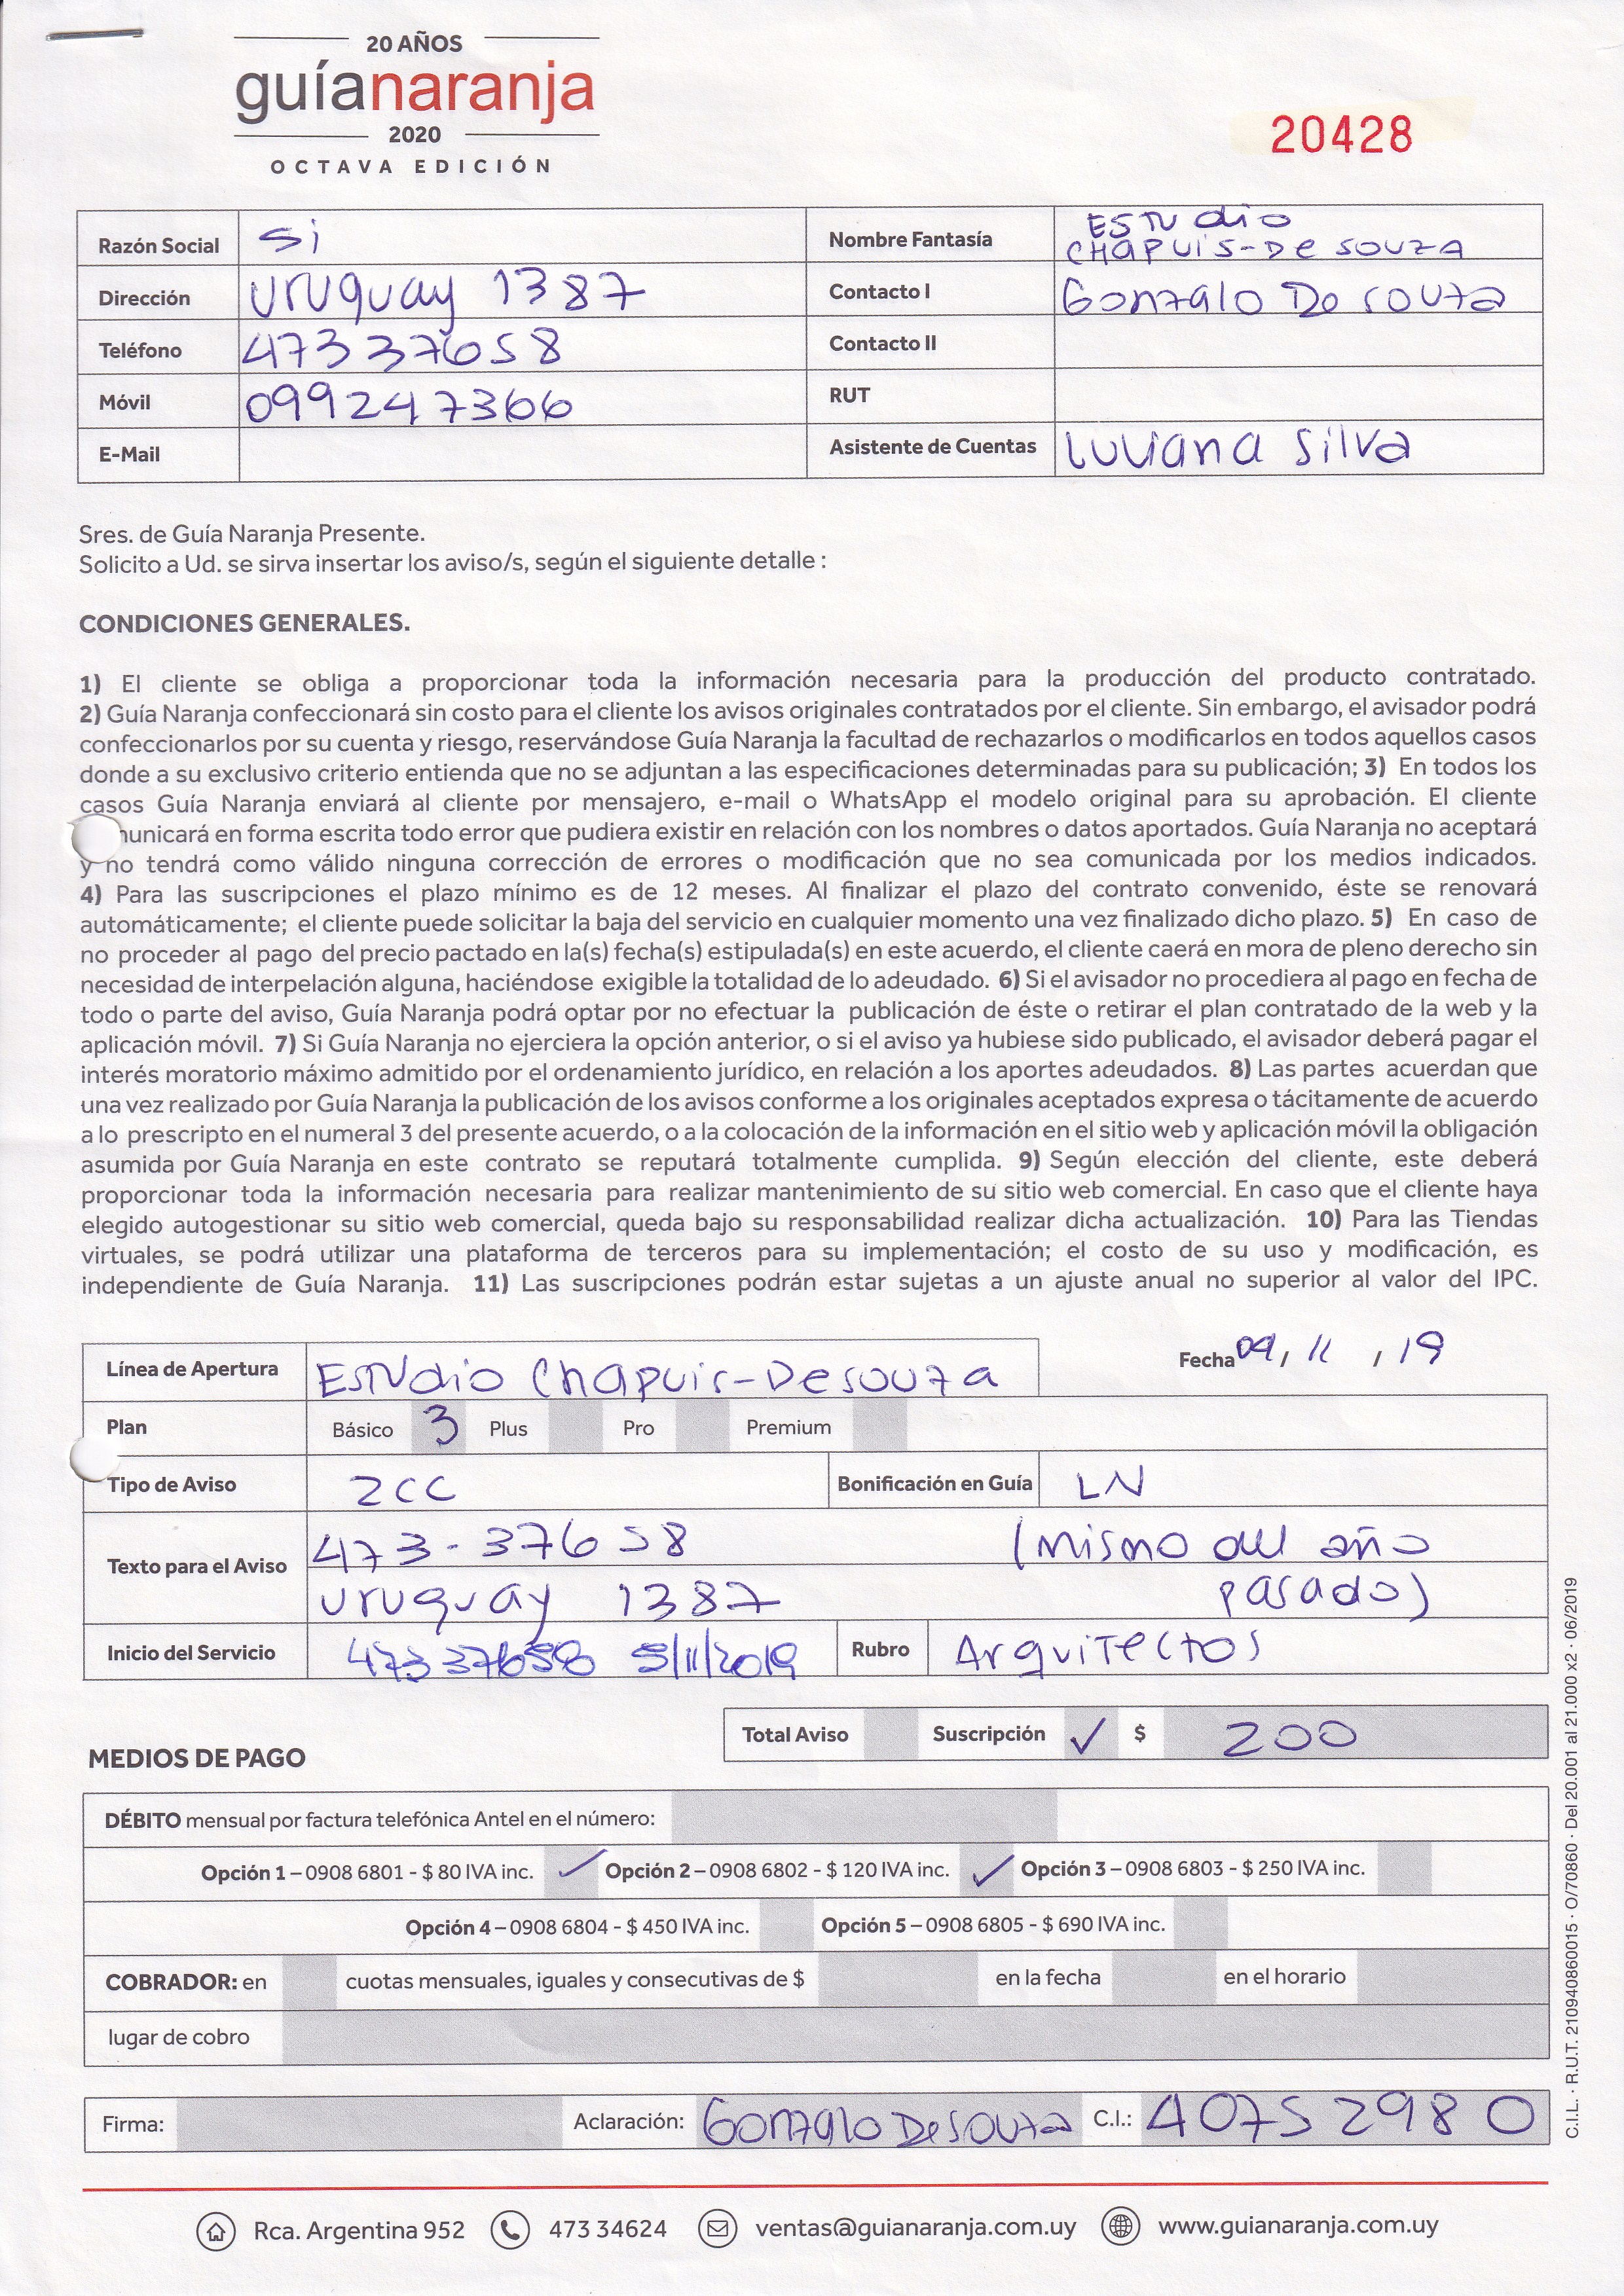 20 AÑOS
guíanaranja
2020
OCTAVA EDICIÓN
20428
Razón Social Si Nombre Fantasía Estudio
CHAPUIS-De SOUZA
Dirección Uruguay 1387 Contacto I Gonzalo De souza
Teléfono 47337658 Contacto II
Móvil 099247366 RUT
E-Mail Asistente de Cuentas Luciana Silva
Sres. de Guía Naranja Presente.
Solicito a Ud. se sirva insertar los aviso/s, según el siguiente detalle :
CONDICIONES GENERALES.
1) El cliente se obliga a proporcionar toda la información necesaria para la producción del producto contratado.
2) Guía Naranja confeccionará sin costo para el cliente los avisos originales contratados por el cliente. Sin embargo, el avisador podrá
confeccionarlos por su cuenta y riesgo, reservándose Guía Naranja la facultad de rechazarlos o modificarlos en todos aquellos casos
donde a su exclusivo criterio entienda que no se adjuntan a las especificaciones determinadas para su publicación; 3) En todos los
casos Guía Naranja enviará al cliente por mensajero, e-mail o WhatsApp el modelo original para su aprobación. El cliente
municará en forma escrita todo error que pudiera existir en relación con los nombres o datos aportados. Guía Naranja no aceptará
y no tendrá como válido ninguna corrección de errores o modificación que no sea comunicada por los medios indicados.
4) Para las suscripciones el plazo mínimo es de 12 meses. Al finalizar el plazo del contrato convenido, éste se renovará
automáticamente; el cliente puede solicitar la baja del servicio en cualquier momento una vez finalizado dicho plazo. 5) En caso de
no proceder al pago del precio pactado en la(s) fecha(s) estipulada(s) en este acuerdo, el cliente caerá en mora de pleno derecho sin
necesidad de interpelación alguna, haciéndose exigible la totalidad de lo adeudado. 6) Si el avisador no procediera al pago en fecha de
todo o parte del aviso, Guía Naranja podrá optar por no efectuar la publicación de éste o retirar el plan contratado de la web y la
aplicación móvil. 7) Si Guía Naranja no ejerciera la opción anterior, o si el aviso ya hubiese sido publicado, el avisador deberá pagar el
interés moratorio máximo admitido por el ordenamiento jurídico, en relación a los aportes adeudados. 8) Las partes acuerdan que
una vez realizado por Guía Naranja la publicación de los avisos conforme a los originales aceptados expresa o tácitamente de acuerdo
a lo prescripto en el numeral 3 del presente acuerdo, o a la colocación de la información en el sitio web y aplicación móvil la obligación
asumida por Guía Naranja en este contrato se reputará totalmente cumplida. 9) Según elección del cliente, este deberá
proporcionar toda la información necesaria para realizar mantenimiento de su sitio web comercial. En caso que el cliente haya
elegido autogestionar su sitio web comercial, queda bajo su responsabilidad realizar dicha actualización. 10) Para las Tiendas
virtuales, se podrá utilizar una plataforma de terceros para su implementación; el costo de su uso y modificación, es
independiente de Guía Naranja. 11) Las suscripciones podrán estar sujetas a un ajuste anual no superior al valor del IPC.
Línea de Apertura Estudio Chapuis-De souza Fecha 09/ 11 / 19
Plan Básico 3 Plus Pro Premium
Tipo de Aviso 2CC Bonificación en Guía LN
Texto para el Aviso 473-37658 (mismo del año
Uruguay 1387 pasado)
Inicio del Servicio 47337658 5/11/2019 Rubro Arquitectos
Total Aviso Suscripción ✓ $ 200
MEDIOS DE PAGO
DÉBITO mensual por factura telefónica Antel en el número:
Opción 1 – 0908 6801 - $ 80 IVA inc. ✓ Opción 2 – 0908 6802 - $ 120 IVA inc. ✓ Opción 3 – 0908 6803 - $ 250 IVA inc.
Opción 4 – 0908 6804 - $ 450 IVA inc. Opción 5 – 0908 6805 - $ 690 IVA inc.
COBRADOR: en cuotas mensuales, iguales y consecutivas de $ en la fecha en el horario
lugar de cobro
Firma: Aclaración: Gonzalo De souza C.I.: 4075 298 0
Rca. Argentina 952 473 34624 ventas@guianaranja.com.uy www.guianaranja.com.uy
C.I.L. · R.U.T. 210940860015 · O/70860 · Del 20.001 al 21.000 x2 · 06/2019